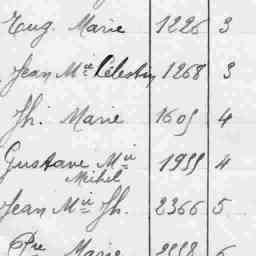 Eug. Marie 1226 3
Jean Mie Célestin 1268 3
Jh. Marie 1605 4
Gustave Mie 1955 4
Michel
Jean Mie Jh. 2366 5
Pre Marie 2558 6